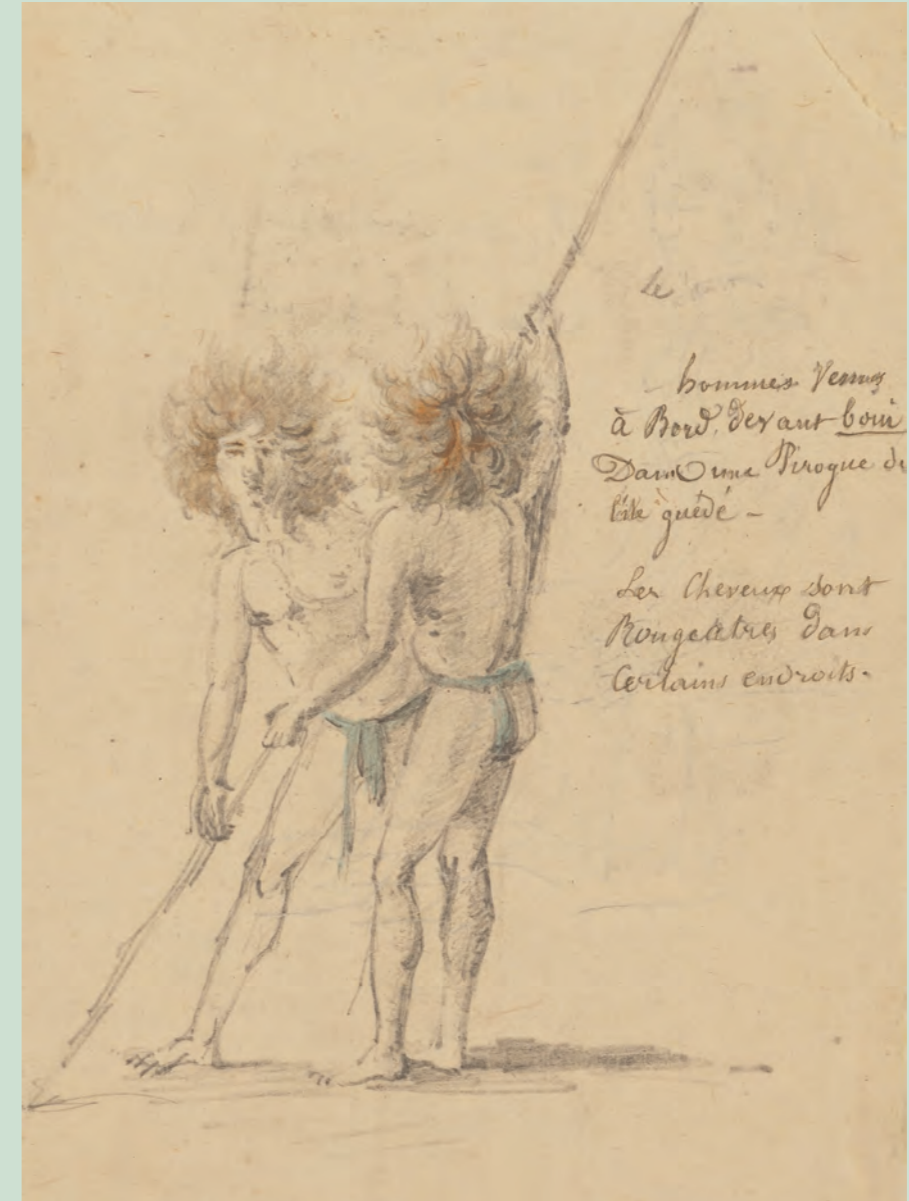 Le
hommes Venus
à Bord devant boni
Dans une Pirogue de
guédé -
Les Cheveux sont
Rougeatres dans
Certains endroits.